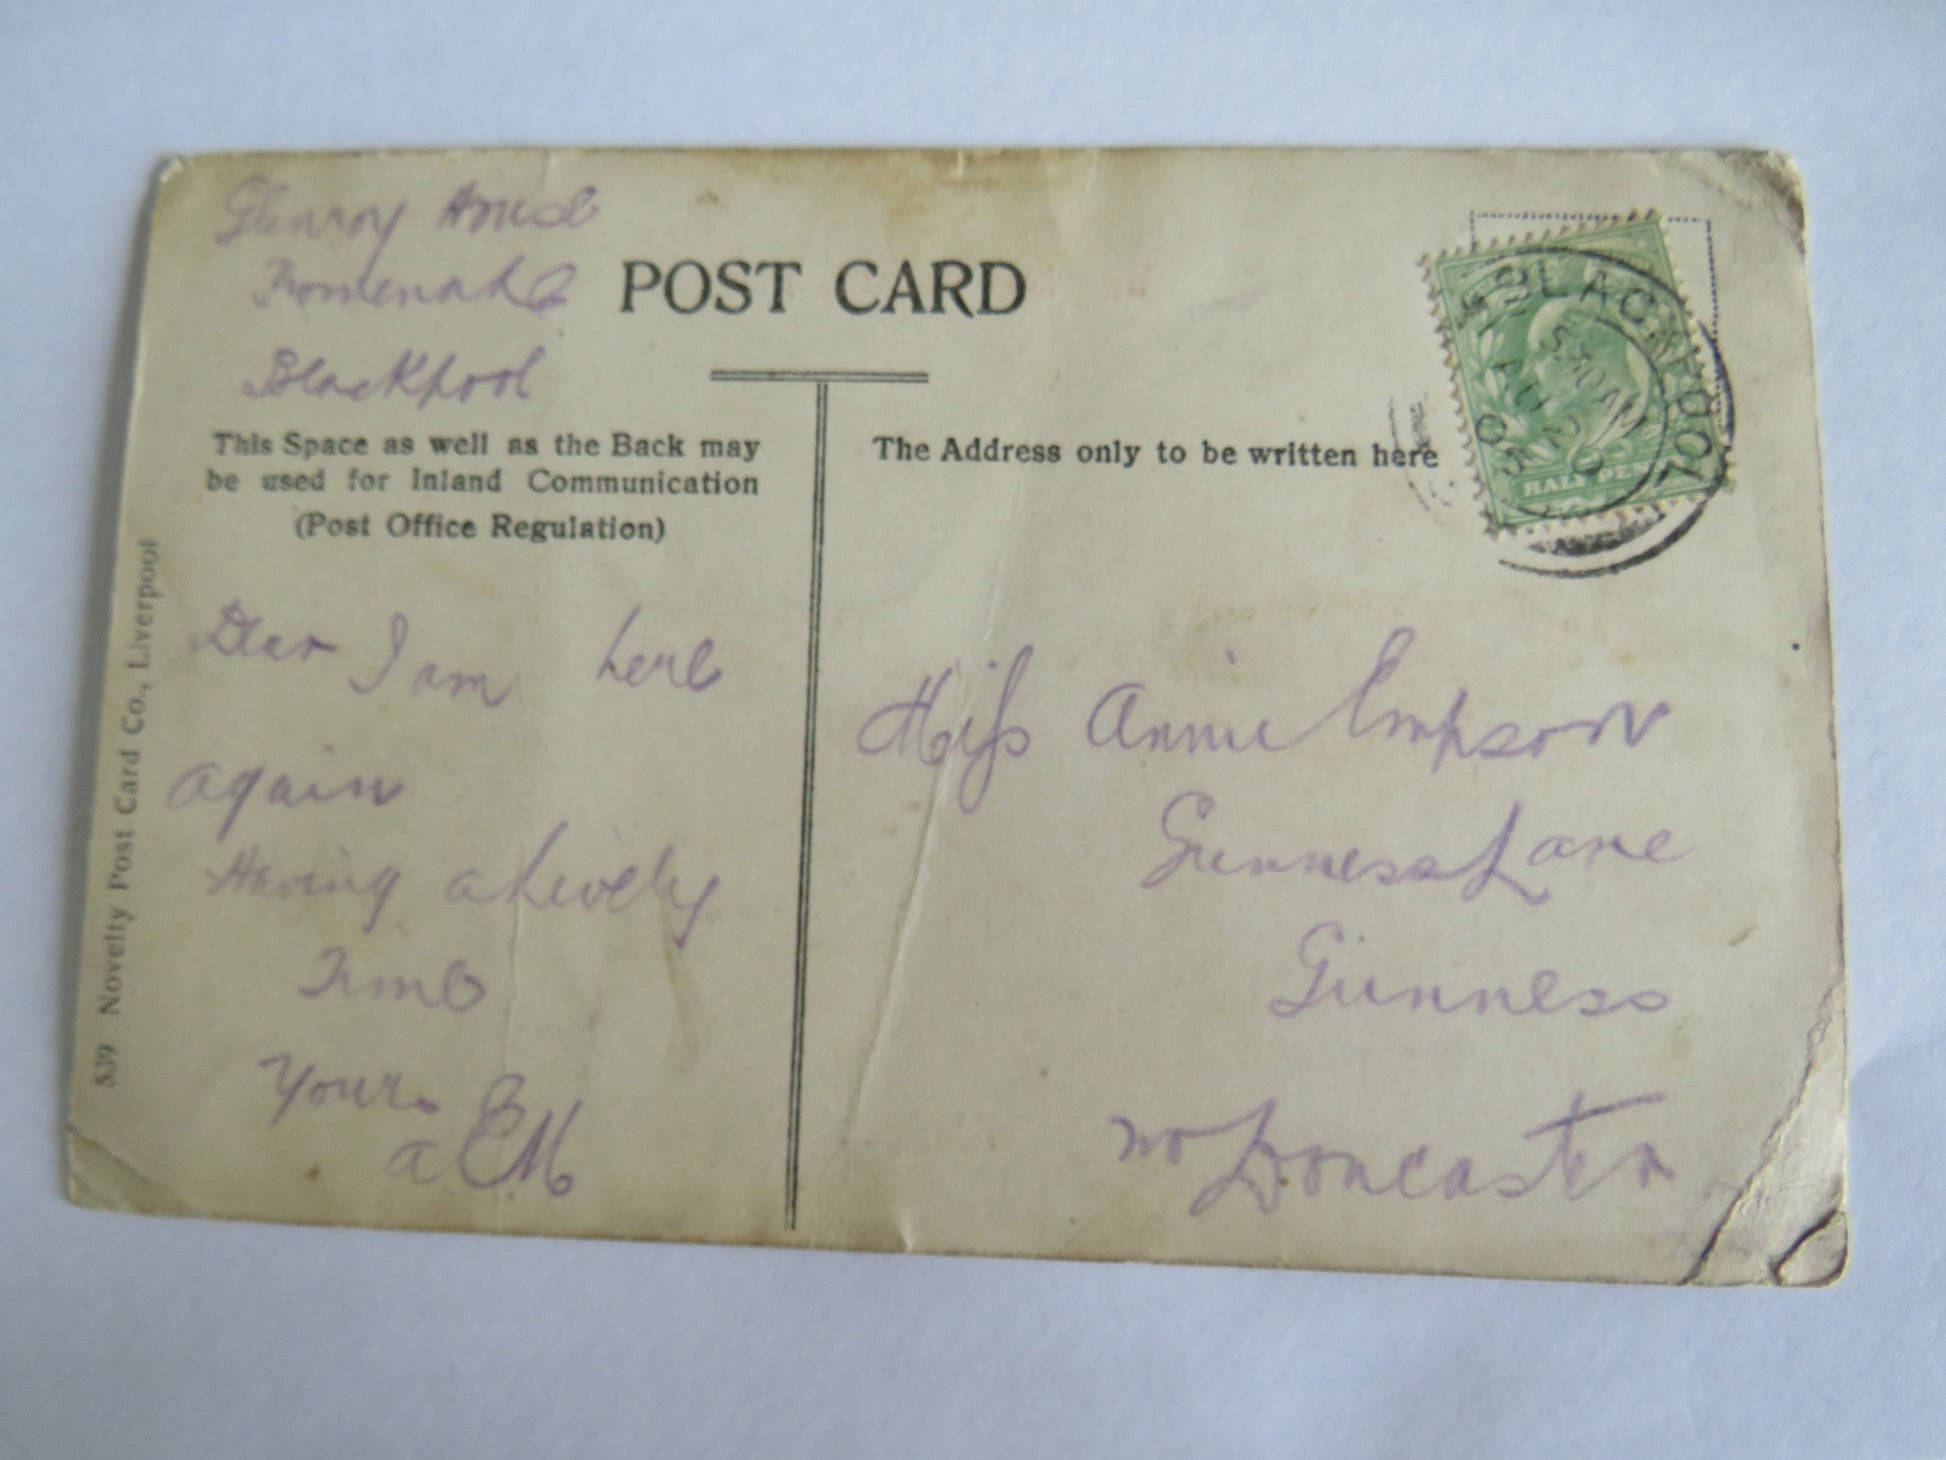 Glenroy House
Promenade
Blackpool
POST CARD
This Space as well as the Back may
be used for Inland Communication
(Post Office Regulation)
The Address only to be written here
BLACKPOOL
5 30 AM
AU 20
05
HALF PENNY
Dear I am here
again
Having a Lively
Time
Yours
a E M
Miss Annie Empson
Gunness Lane
Gunness
nr Doncaster
539 Novelty Post Card Co., Liverpool